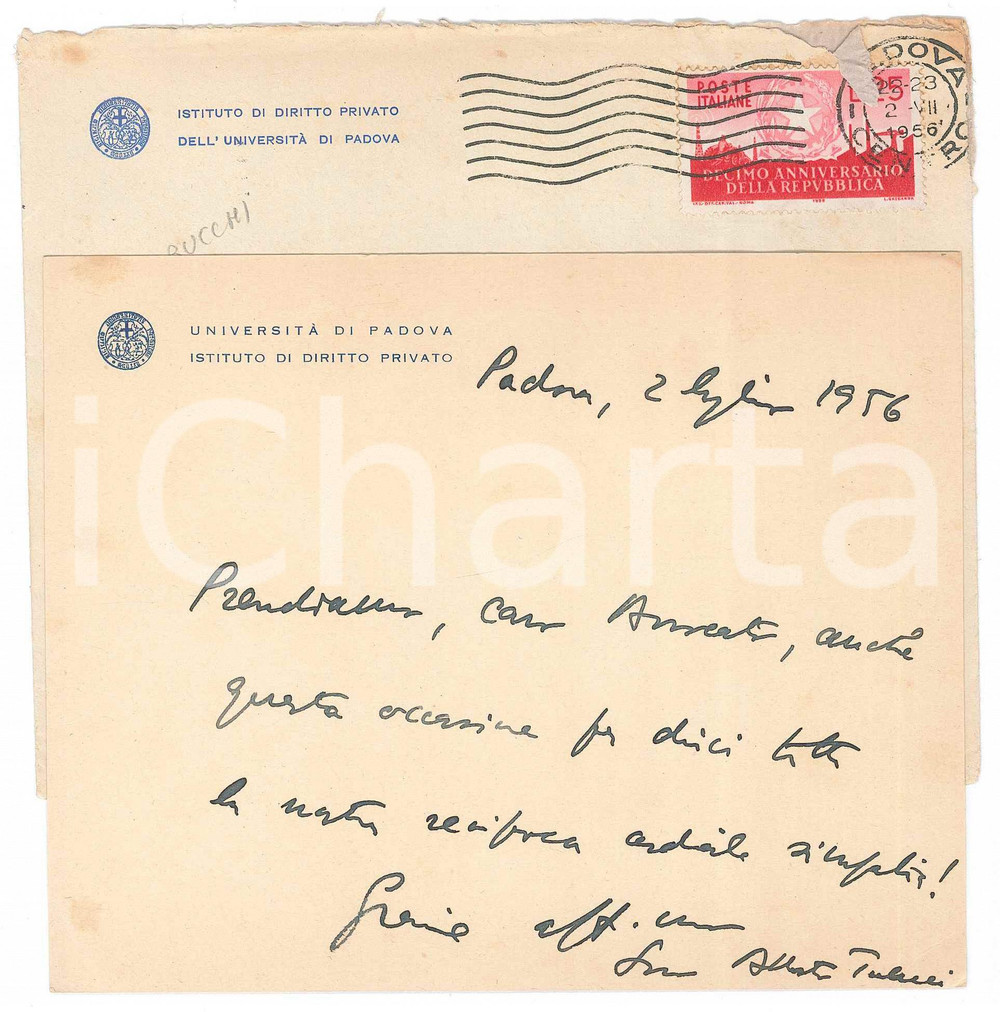 ISTITUTO DI DIRITTO PRIVATO
DELL'UNIVERSITÀ DI PADOVA
POSTE
ITALIANE
L.25
DECIMO ANNIVERSARIO
DELLA REPVBBLICA
1956
23
2 VII
1956
BUCCHI
UNIVERSITÀ DI PADOVA
ISTITUTO DI DIRITTO PRIVATO
Padova, 2 luglio 1956
iCharta
Prendiamo, caro, anche
questa occasione per dirci tutta
la nostra reciproca cordiale simpatia!
Grazie aff.mo
Suo Alberto